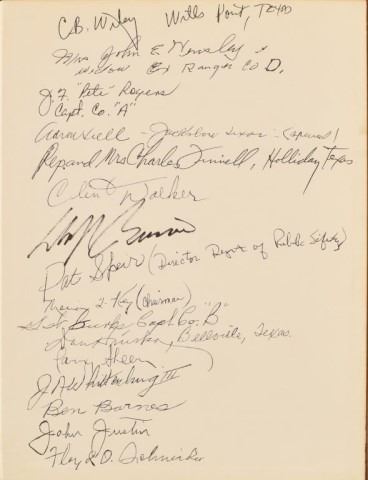 C.B. Wiley Wills Point, Texas
Mrs John E. Hensley &
widow Ex Ranger Co D.
J.F. "Pete" Rogers
Capt. Co. "A"
Jacksboro Texas - (special)
Rep. and Mrs Charles Finnell, Holliday Texas
Clint Walker
Pat Speir (Director Dept of Public Safety)
Key (Chairman)
Burks Capt. Co. "B"
Bellville, Texas.
J A Whittenburg III
Ben Barnes
John Justin
Floyd D.